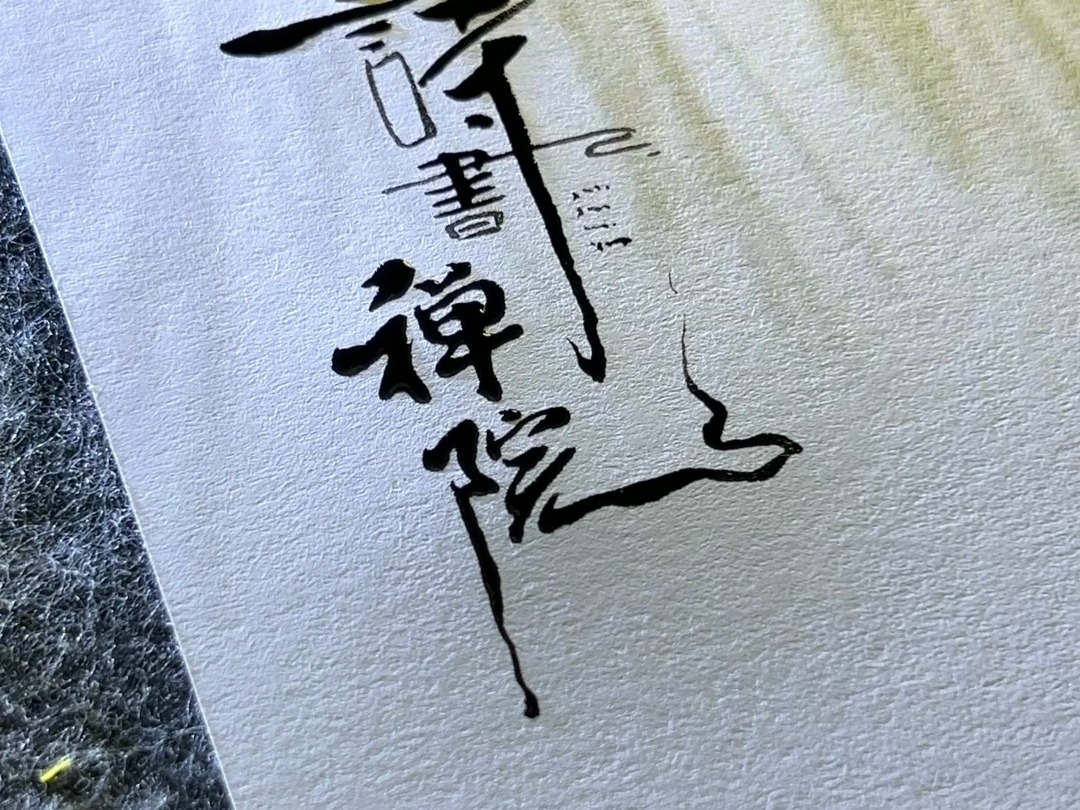 詩
書
禅
院